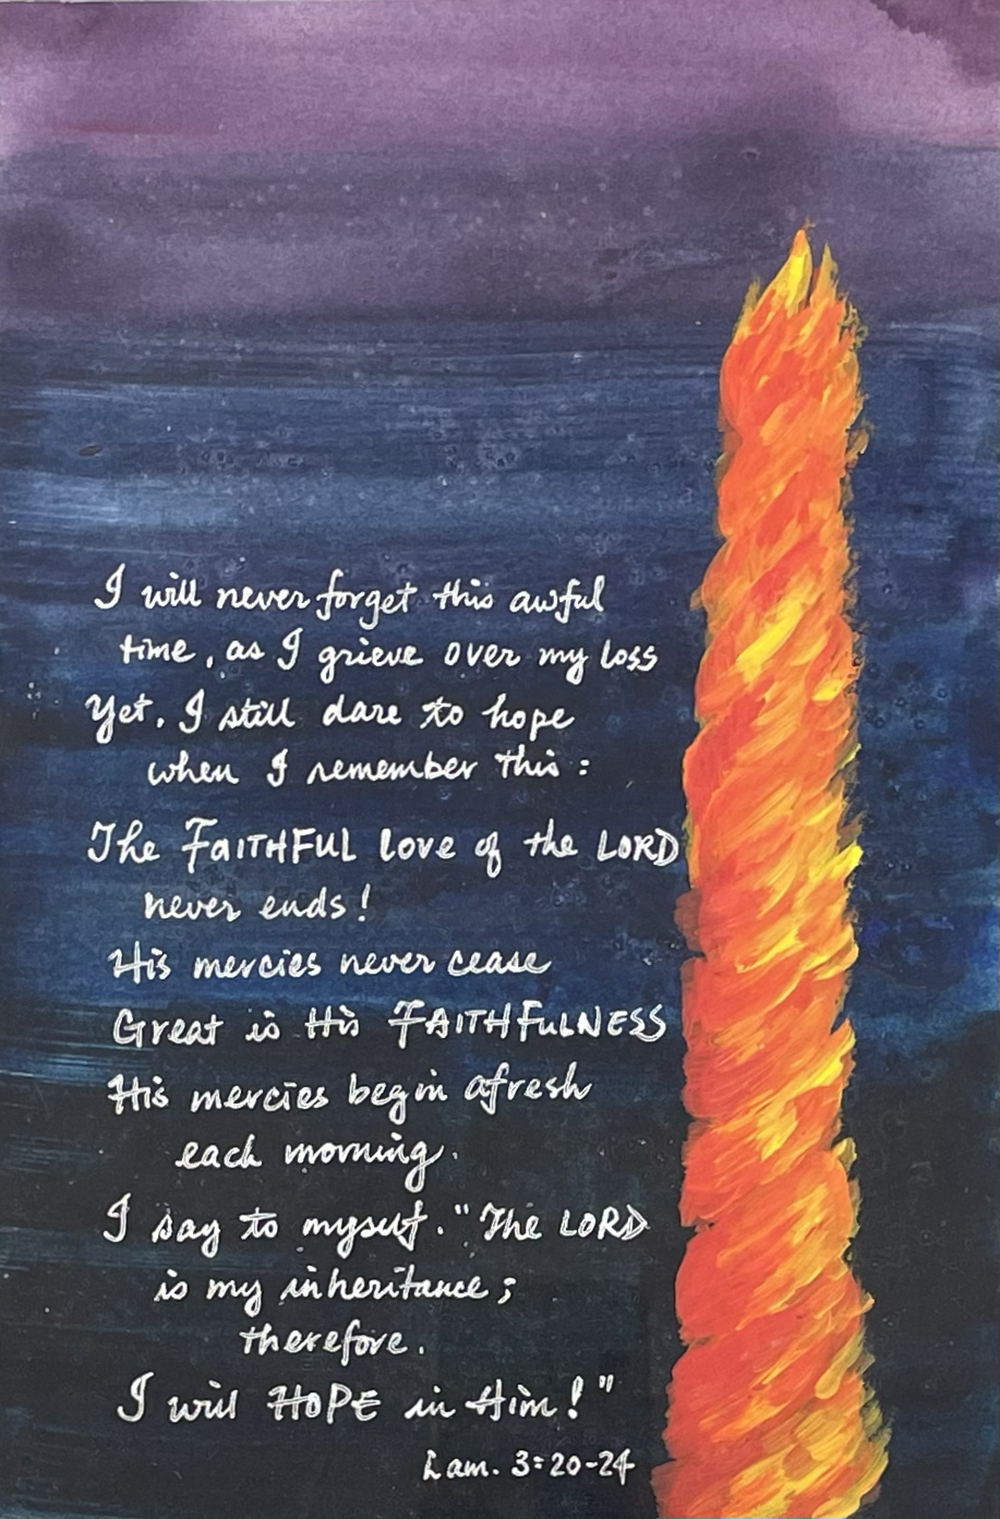 I will never forget this awful
time, as I grieve over my loss
Yet, I still dare to hope
when I remember this:
The FAITHFUL love of the LORD
never ends!
His mercies never cease
Great is His FAITHFULNESS
His mercies begin afresh
each morning.
I say to myself. "The LORD
is my inheritance;
therefore.
I will HOPE in Him!"
Lam. 3:20-24